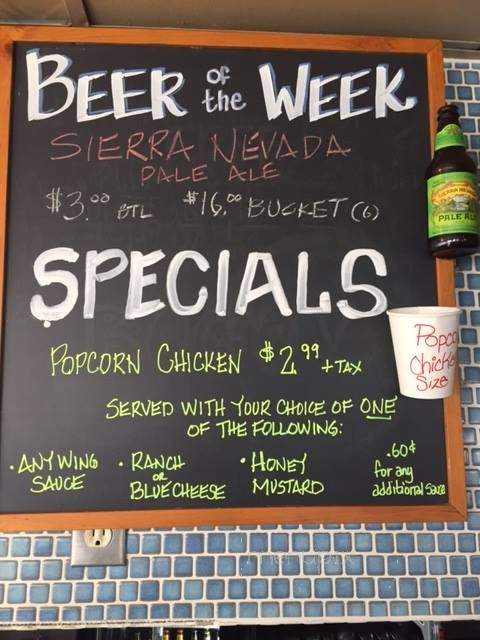 BEER OF the WEEK
SIERRA NEVADA
PALE ALE
$3.00 BTL $16.00 BUCKET (6)
SPECIALS
POPCORN CHICKEN $2.99 + TAX
SERVED WITH YOUR CHOICE OF ONE
OF THE FOLLOWING:
• ANY WING SAUCE
• RANCH OR BLUE CHEESE
• HONEY MUSTARD
.60¢ for any additional sauce
SIERRA NEVADA
PALE ALE
Size